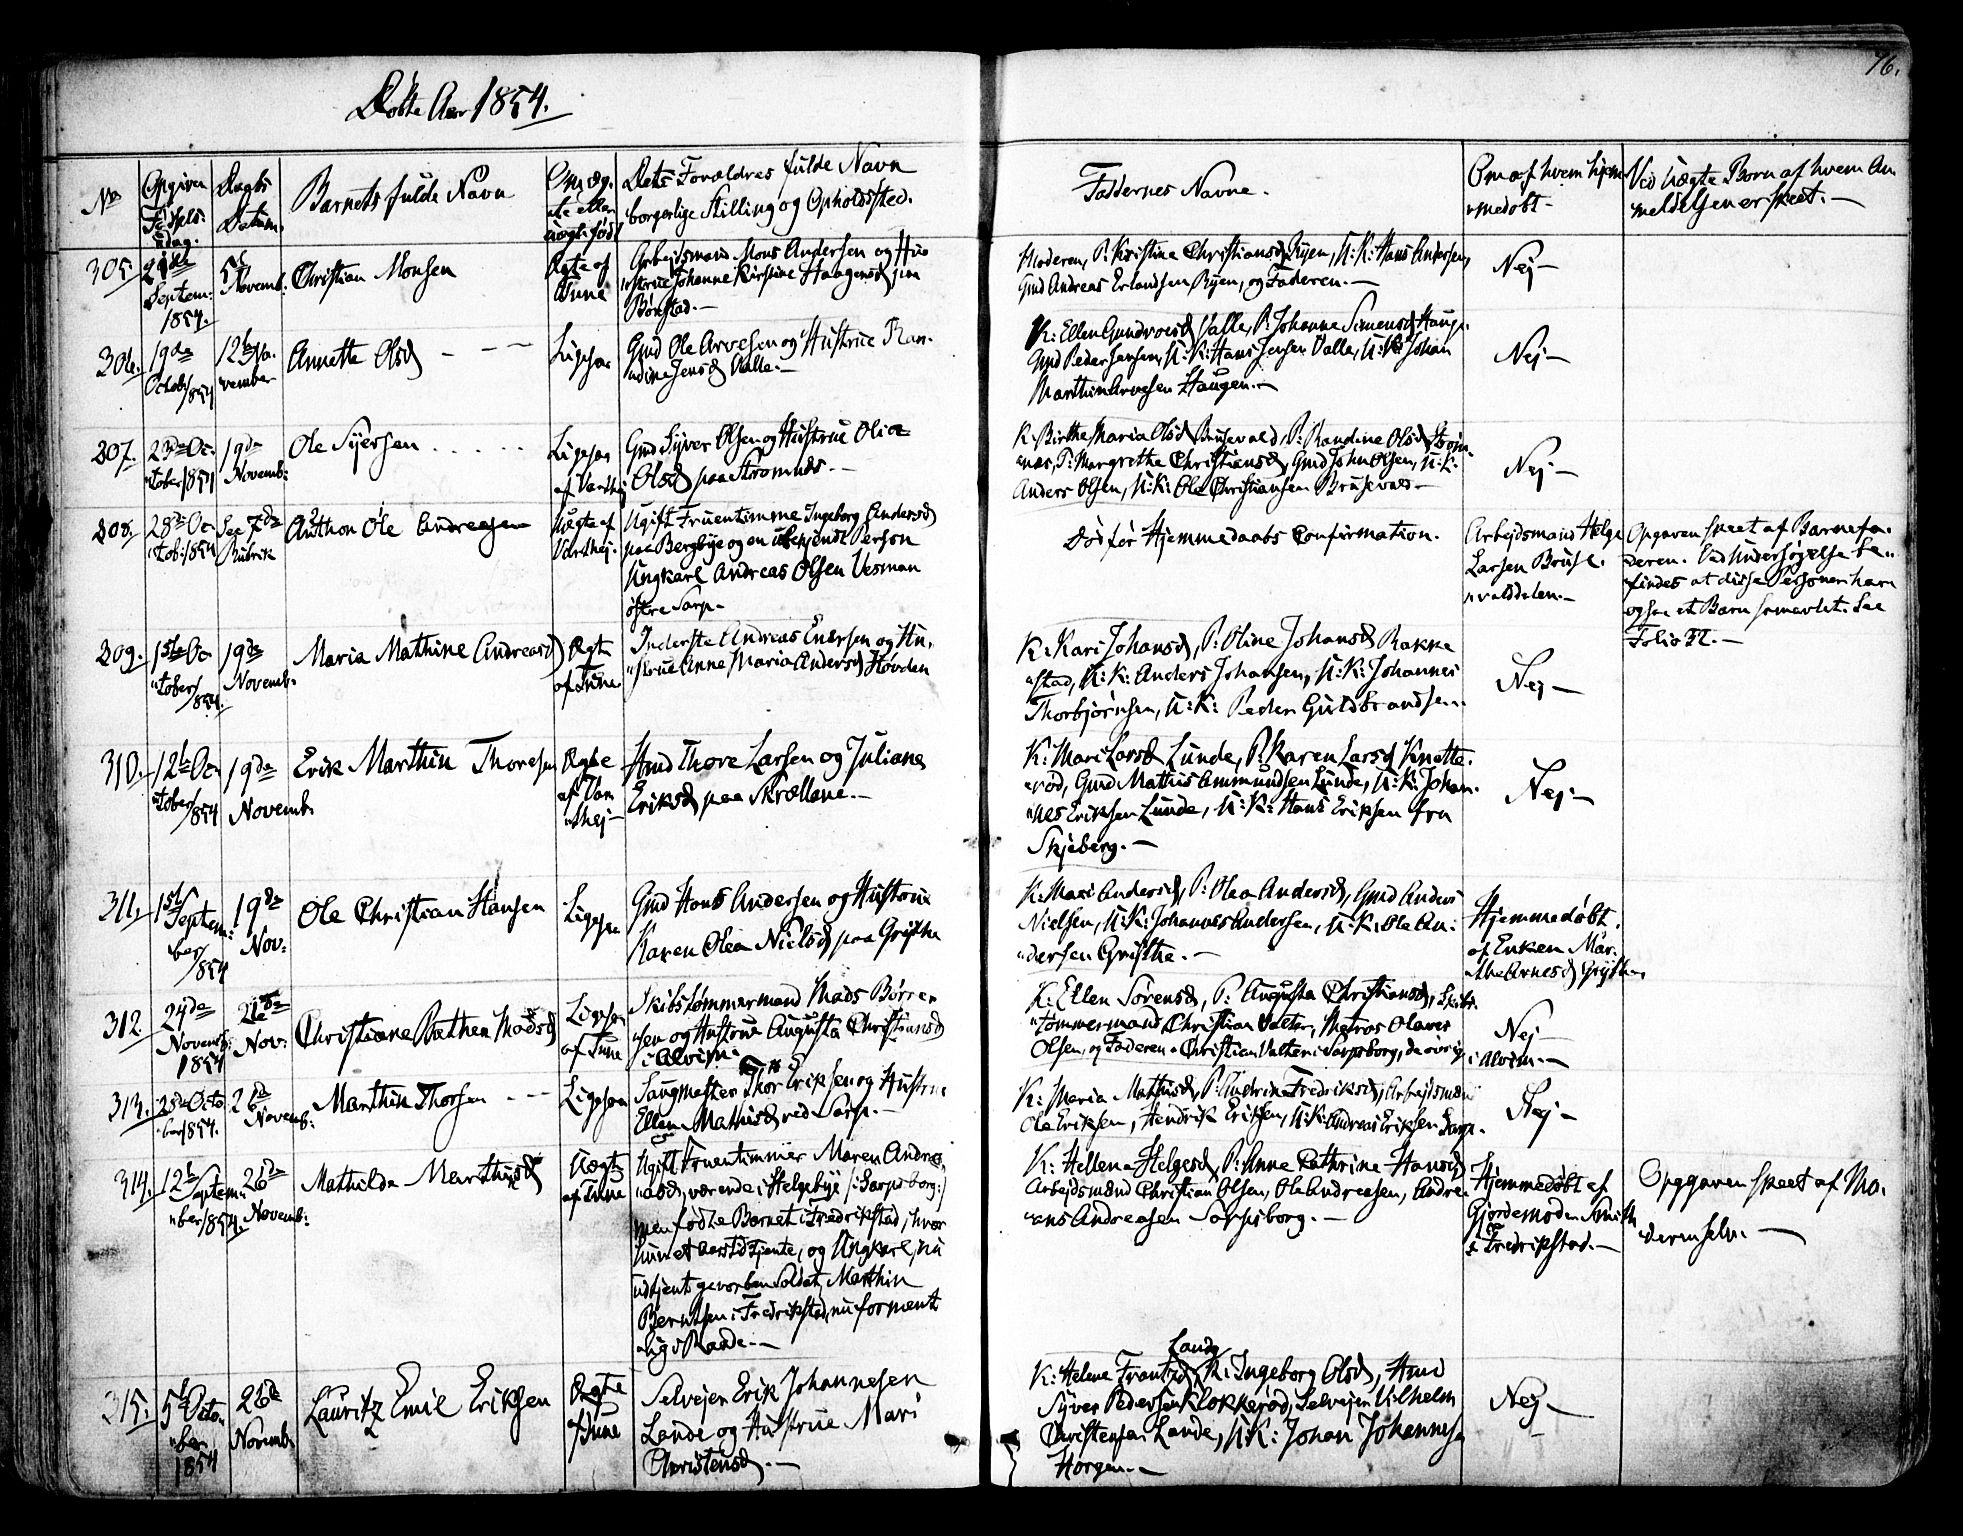 Døbte Aar 1854.
76.
No
Opgiven Fødselsdag.
Daabs Datum.
Barnets fulde Navn
Om ægte eller uægte født
Dets Forældres fulde Navn
borgerlige Stilling og Opholdssted.
Faddernes Navne.
Om af hvem hjemmedøbt
Ved Uægte Børn af hvem Anmeldelsen er skeet.
305.
Septem: 1854.
5t Novemb:
Christian Monsen
Ægte af Tune
Arbejdsmand Mons Andersen og Hu
strue Johanne Kirstine Haagensd paa
Bønstad.
Moderen, P: Kristine Christiansd Ryen, U:K: Hans Andersen,
Gmd Andreas Erlandsen Ryen, og Faderen.
Nej
306.
19de Octob/854
12te November
Annette Olsd
Ligesaa
Gmd Ole Arvesen og Hustrue Ran
dine Jensd Valle.
K: Ellen Gundroesd Valle, P: Johanne Simensd Hauge
Gmd Peder Jensen, U:K: Hans Jensen Valle, U:K: Johan
Marthin Arvesen Haugen.
Nej
307.
23de October/854
19de Novemb:
Ole Syversen
Ligesaa af Varthej
Gmd Syver Olsen og Hustrue Olia
Olsd paa Strømnes.
K: Birthe Maria Olsd Brusevold, P: Randine Olsd Strøm
næs, P: Margrethe Christiansd, Gmd John Olsen, U:K:
Anders Olsen, U:K: Ole Christiansen Brusevold
Nej
308.
28de Octob:/854
See 7de Rubrik
Anthon Ole Andreasen
Uægte af Varthej.
Ugift Fruentimme Ingeborg Andersd
paa Bergbye og en ubekjendt Person
Ungkarl Andreas Olsen Vesman
østre Sarp.
Død før Hjemmedaabs Confirmation.
Arbejdsmand Helge
Larsen Bruse
volddelen.
Opgaven skeet af Barnefa
deren. Ved Undersøgelse be
findes at disse Personer have
ogsaa et Barn sammen før. See
Folio 72.
309.
1ste October/854.
19de Novemb:
Maria Mathine Andreasd
Ægte af Tune
Inderste Andreas Enersen og Hu
strue Anne Maria Andersd Hovden
K: Kari Johansd, P: Oline Johansd Rakke
stad, U:K: Anders Johansen, U:K: Johannes
Thorbjørnsen, U:K: Peder Guldbrandsen.
Nej
310.
12te October/854
19de Novemb.
Erik Marthin Thoresen
Ægte af Varthej
Hmd Thore Larsen og Juliane
Eriksd paa Skrællene.
K: Mari Larsd Lunde, P: Karen Larsd Knatte
rød, Gmd Mathis Ammundsen Lunde, U:K: Johan
nes Eriksen Lunde, U:K: Hans Eriksen fra
Skjeberg.
Nej
311.
1ste September/854
19de Nov:
Ole Christian Hansen
Ligesaa
Gmd Hans Andersen og Hustrue
Karen Olea Nielsd paa Gristhe
K: Mari Andersd, P: Olea Andersd, Gmd Anders
Nielsen, U:K: Johannes Andersen, U:K: Ole An
dersen Gristhe.
Hjemmedøbt
af Enken Mar
the Arnesd Gristhe
312.
24de Novemb: 1854
Nov:
Christiane Bathea Madsd
Ligesaa af Tune
Skibstømmermand Mads Børre
sen og Hustrue Augusta Christiansd
i Alvim.
K: Ellen Sørensd, P: Augusta Christiansd, Skibs
tømmermand Christian Valter, Matros Olaves
Olsen, og Faderen. Christian Valter i Sarpsborg, de øvrige i Alvim.
Nej
313.
25de October 1854.
26de Novemb:
Marthin Thorsen
Ligesaa
Saugmester Thor Eriksen og Hustrue
Ellen Mathisd ved Sarp.
K: Maria Mathisd, P: Andrine Fredriksd, Arbejdsmænd
Ole Eriksen, Hendrik Eriksen, U:K: Andreas Eriksen Sarp.
Nej
314.
12te September/854.
26de Novemb:
Mathilda Marthinsd
Uægte af Tune
Ugift Fruentimmer Maren Andre
asd, værende i Helgebye /: Sarpsborg:/
men fødte Barnet i Fredrikstad, hvor
hun et Aarstid tjente, og Ungkarl, nu
udtjent gevorben Soldat, Marthin
Berntsen i Fredrikstad, nu forment
lig i Raade.
K: Hellena Helgesd, P: Anne Cathrine Hansd,
Arbejdsmænd Christian Olsen, Ole Andreasen, Andre
as Andreasen Sarpsborg.
Hjemmedøbt af
Gjordemoder Smith
i Fredrikstad.
Opgaven skeet af Mo
deren selv.
315.
5te October 1854
26de Novemb:
Lauritz Emil Eriksen
Ægte af Tune
Selvejer Erik Johannesen
Lande og Hustrue Mari
Christensd.
Lande
K: Helene Frantzd, K: Ingeborg Olsd, Hmd
Syver Pedersen Klokkerød, Selvejer Vilhelm
Christensen Lande, U:K: Johan Johannesen
Horgen.
Nej